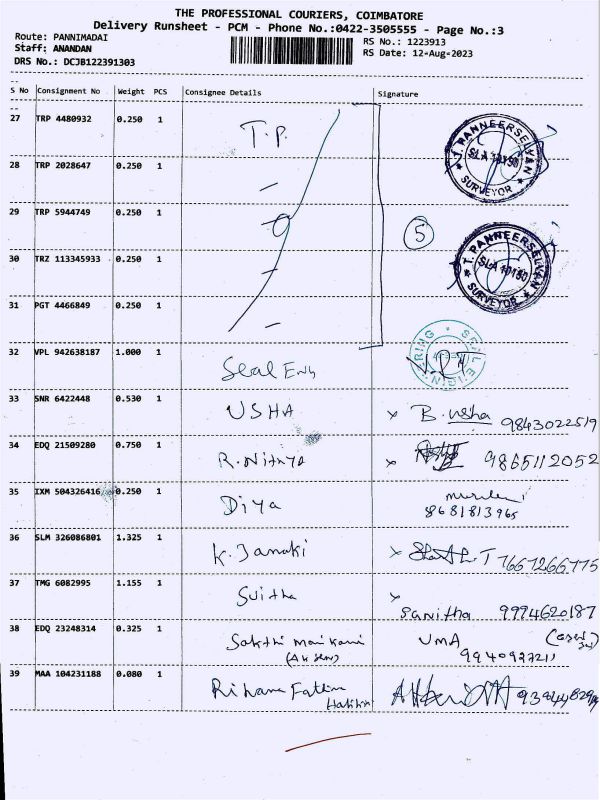 THE PROFESSIONAL COURIERS, COIMBATORE
Delivery Runsheet - PCM - Phone No.:0422-3505555 - Page No.:3
Route: PANNIMADAI
RS No.: 1223913
Staff: ANANDAN
RS Date: 12-Aug-2023
DRS No.: DCJB122391303
S No Consignment No Weight PCS Consignee Details Signature
27 TRP 4480932 0.250 1 T.P. T. PANNEERSELVAN SURVEYOR
28 TRP 2028647 0.250 1
29 TRP 5944749 0.250 1 5
30 TRZ 113345933 0.250 1 T. PANNEERSELVAN SURVEYOR
31 PGT 4466849 0.250 1
32 VPL 942638187 1.000 1 Seal Eng
33 SNR 6422448 0.530 1 USHA x B. usha 9843022519
34 EDQ 21509280 0.750 1 R. Nithya x 9865112052
35 IXM 504326416 0.250 1 Diya
8681813965
36 SLM 326086801 1.325 1 K. Janaki x 7667266775
37 TMG 6082995 1.155 1 x
9994620187
38 EDQ 23248314 0.325 1 Sakthi UMA
9940927211
39 MAA 104231188 0.080 1